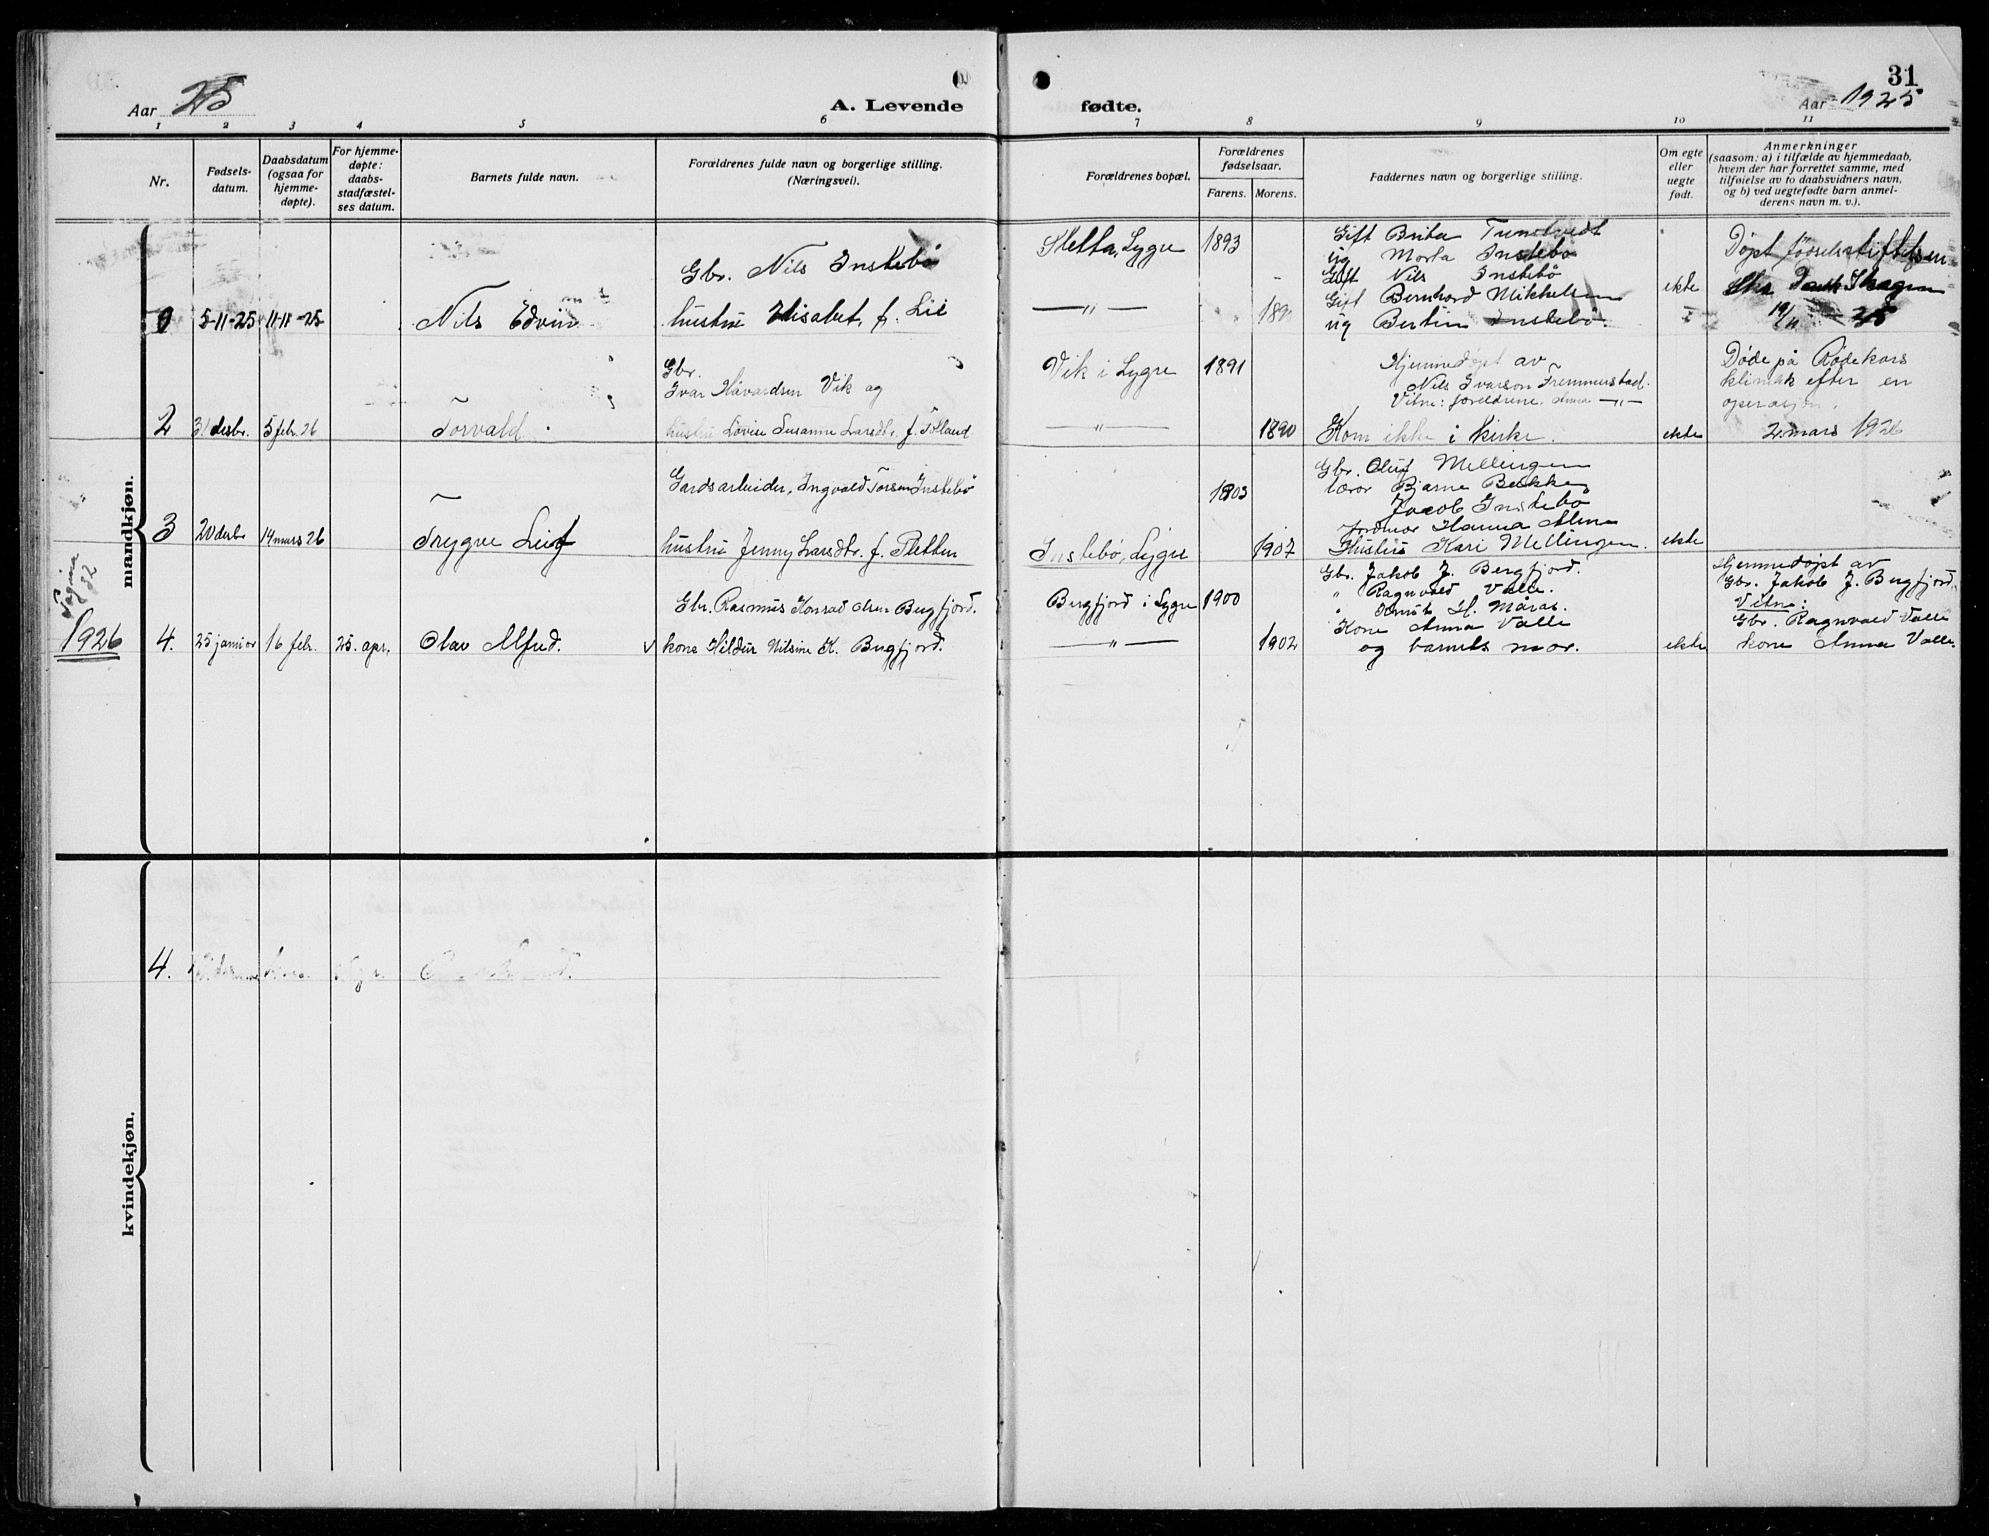 31
Aar 25
A. Levende
fødte.
Aar 1925
1 2 3 4 5 6 7 8 9 10 11
Nr.
Fødsels-
datum.
Daabsdatum
(ogsaa for
hjemme-
døpte).
For hjemme-
døpte:
daabs-
stadfæstel-
ses datum.
Barnets fulde navn.
Forældrenes fulde navn og borgerlige stilling.
(Næringsvei).
Forældrenes bopæl.
Forældrenes
fødselsaar.
Farens. Morens.
Faddernes navn og borgerlige stilling.
Om egte
eller
uegte
født.
Anmerkninger
(saasom: a) i tilfælde av hjemmedaab,
hvem der har forrettet samme, med
tilføielse av to daabsvidners navn,
og b) ved uegtefødte barn anmel-
derens navn m. v.).
mandkjøn.
5-11-25 11-11-25
Nils Edvin
Gbr. Nils Instebø
hustru Elisabet, f. Lie
Sletta, Lygre
—"—
1893
Gift Brita
ug Marta Instebø
Gift Nils Instebø
Gift Bernhard Mikkelsen
ug Instebø.
ekte
Døpt
19/11 25
2 31 desbr. 5 febr. 26
Torvald
Gbr.
Ivar Håvardsen Vik og
hustru Lovise Susanne Larsdtr. f. Tolland
Vik i Lygre
—"—
1891
1890
Hjemmedøpt av
Nils Ivarson
Vitne: foreldrene, Anna —"—
Kom ikke i kirke.
ekte
Døde på Rødekors
klinik efter en
operasjon.
2 mars 1926
3 20 desbr 14 mars 26
Trygve Leif
Gardsarbeider, Ingvald Torsen Instebø
hustru Jenny Larsdtr. f.
Instebø, Lygre
1903
1907
Gbr. Oluf Mellingen
lærer Bjarne Bekken
Jacob Instebø
Jordmor Hanna
Hustru Kari Mellingen.
ekte
Pagina 32
1926
4. 25 januar 16 febr. 25. apr.
Olav Alfred.
Gbr. Rasmus Konrad Olsen Bergfjord.
kone Hildur Nilsine K. Bergfjord.
Bergfjord i Lygre
—"—
1900
1902
Gbr. Jakob J. Bergfjord.
" Ragnvald Valle.
" Knut H. Måras.
Kone Anna Valle
og barnets mor.
ekte
Hjemmedøpt av
Gbr. Jakob J. Bergfjord.
Vitne:
Gbr. Ragnvald Valle
kone Anna Valle.
kvindekjøn.
4.